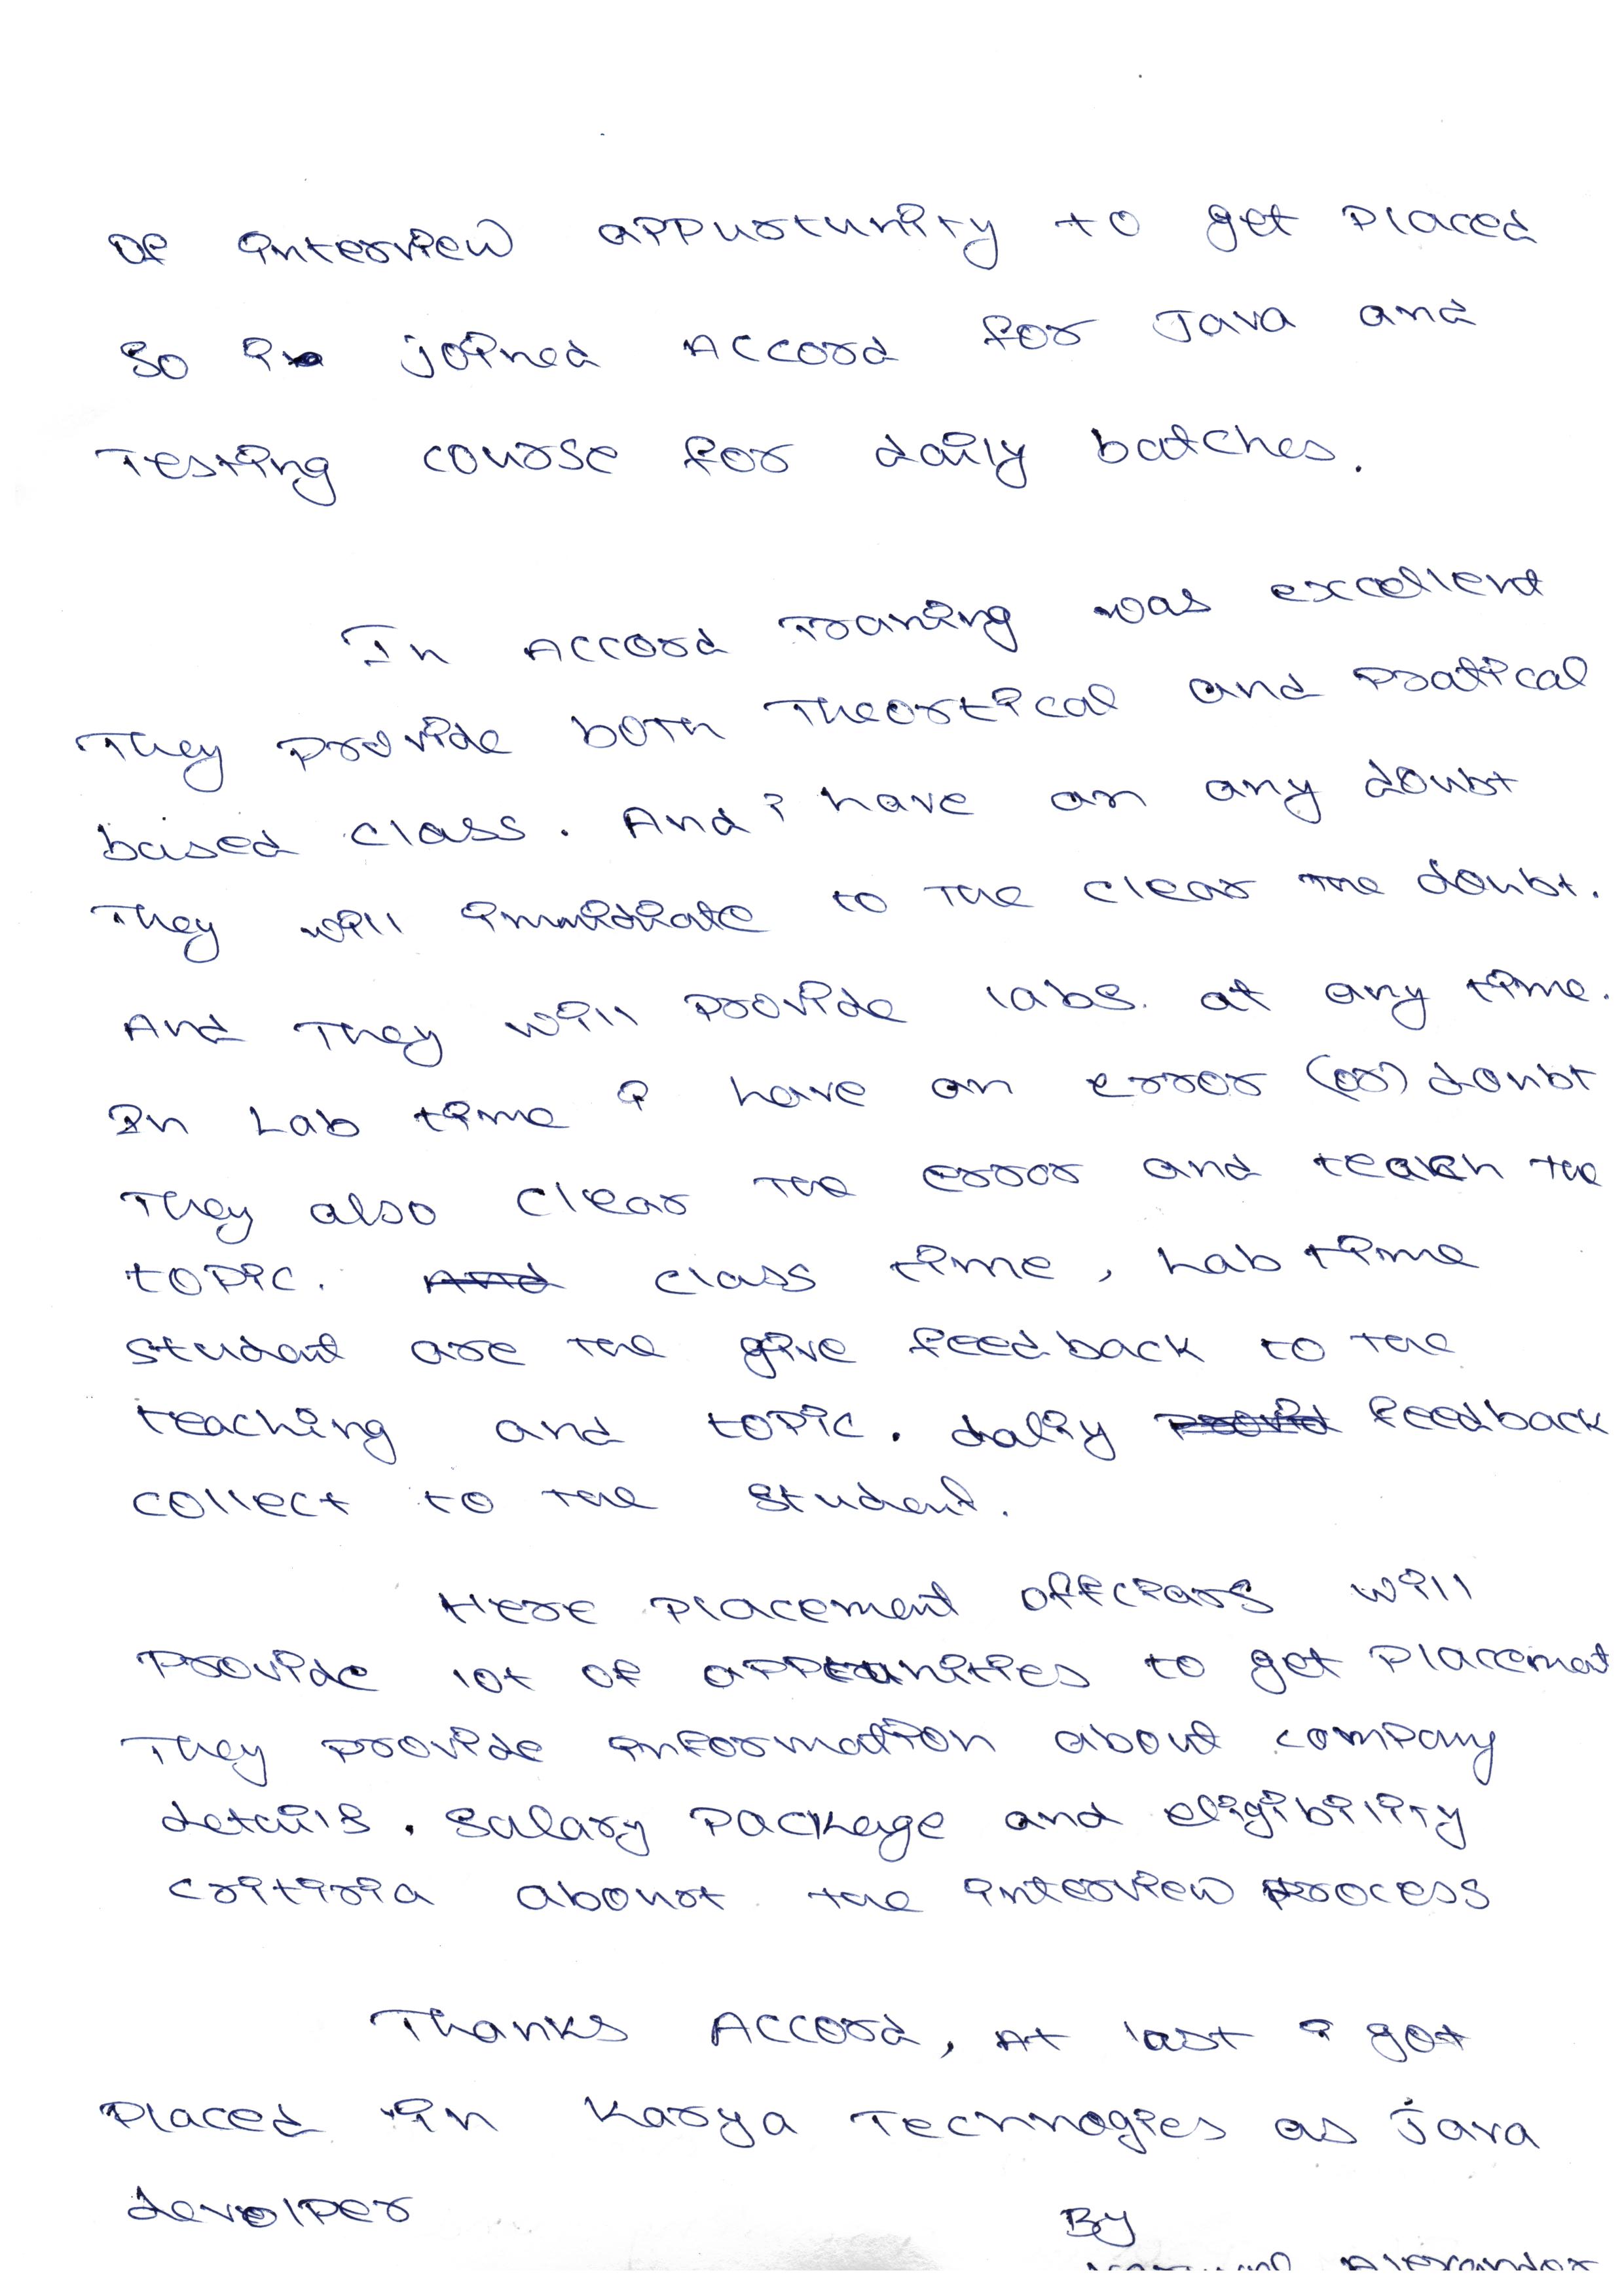 of interview appurtunity to get placed
so i joined Accord for Java and
Testing course for daily batches.
In Accord Traning was excellent
They provide both Theortical and Pratical
based class. And i have an any doubt
They will immidiate to the clear the doubt.
And They will provide labs. at any time.
In Lab time i have an error (or) doubt
They also clear the error and teach the
topic. And class time, Lab time
student are the give feedback to the
teaching and topic. daliy provid feedback
collect to the student.
Here placement officiars will
Provide lot of apptunities to get Placement
They provide information about company
details. Salary Package and eligibility
critiria abount the interview process
Thanks Accord, At last i got
placed in Karya Technogies as Java
devolper
By
Alexander